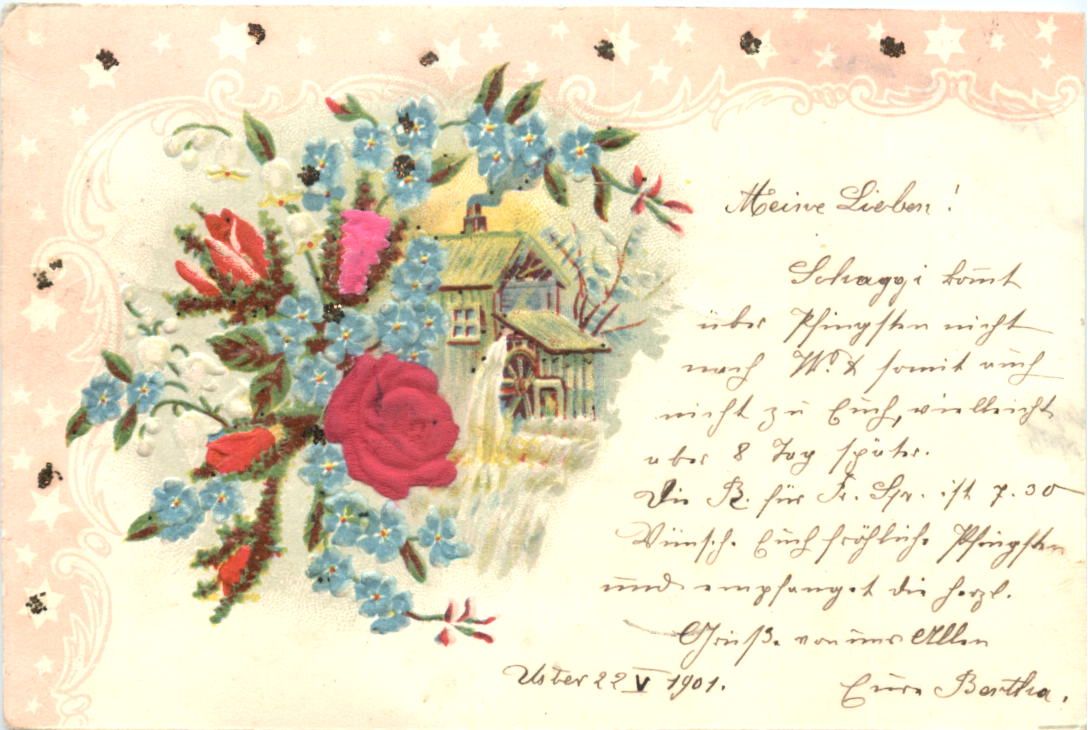 Meine Lieben!
Schaggi kom̄t
über Pfingsten nicht
nach W. & somit auch
nicht zu Euch, vielleicht
aber 8 Tag später.
Die R. für Fr. Spr. ist 7.30
Wünsch. Euch fröhliche Pfingsten
und empfanget die herzl.
Grüße von uns Allen
Eure Bertha.
Uster 22 V 1901.